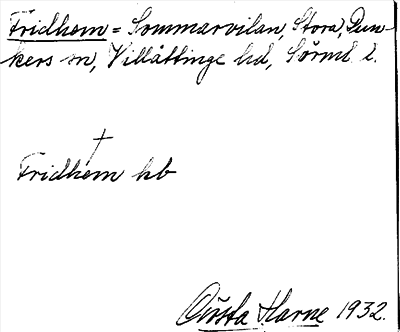 Fridhem = Sommarvilan, Stora, Dun-
kers sn, Villåttinge hd, Sörml. l.
†
Fridhem hb
Gösta Harne 1932.